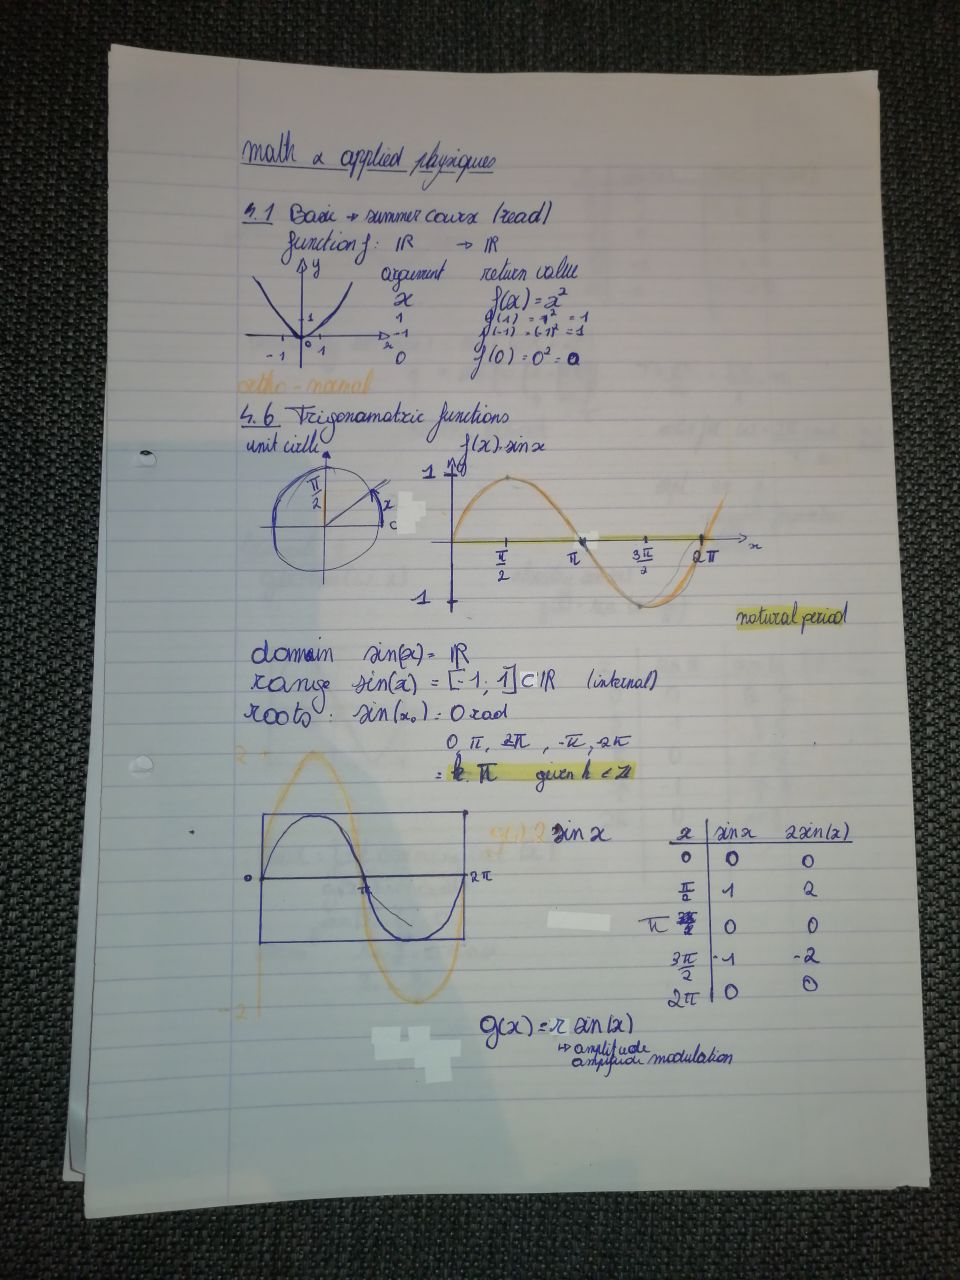 math & applied physiques
4.1 Basic → summer course (read)
function f: ℝ → ℝ
y argument return value
x f(x) = x²
1 f(1) = 1² = 1
-1 f(-1) = (-1)² = 1
0 f(0) = 0² = 0
1
-1 0 1 x
ortho-normal
4.6 Trigonamatric functions
unit circle f(x) = sin x
1 y
π/2 x
0
π/2 π 3π/2 2π x
-1
natural period
domain sin(x) = ℝ
range sin(x) = [-1; 1] ⊂ ℝ (internal)
roots: sin(x₀) = 0 rad
0, π, 2π, -π, -2π
= k. π given k ∈ ℤ
2
g(x)=2 sin x
0 π 2π
-2
x sin x 2sin(x)
0 0 0
π/2 1 2
π 0 0
3π/2 -1 -2
2π 0 0
g(x) = r sin(x)
↦ amplitude
amplitude modulation